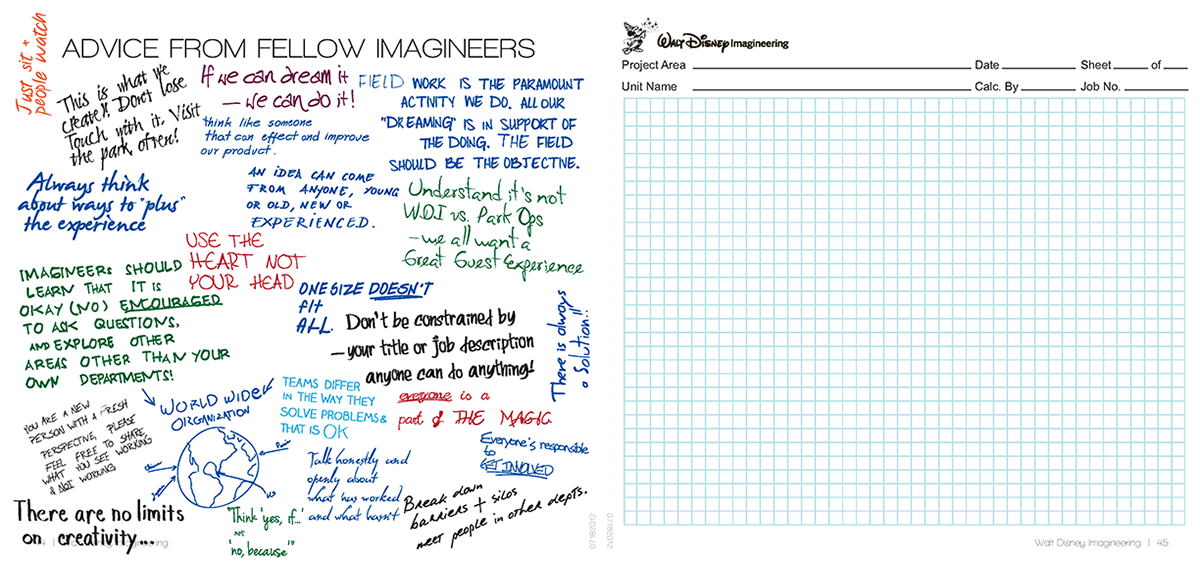 Just sit +
people watch
ADVICE FROM FELLOW IMAGINEERS
This is what we
create!! Don't lose
Touch with it. Visit
the park, often!
If we can dream it
— we can do it!
FIELD WORK IS THE PARAMOUNT
ACTIVITY WE DO. ALL OUR
"DREAMING" IS IN SUPPORT OF
THE DOING. THE FIELD
SHOULD BE THE OBJECTIVE.
think like someone
that can effect and improve
our product.
Always think
about ways to "plus"
the experience
AN IDEA CAN COME
FROM ANYONE, YOUNG
OR OLD, NEW OR
EXPERIENCED.
Understand it's not
W.D.I vs. Park Ops
—we all want a
Great Guest Experience
USE THE
HEART NOT
YOUR HEAD
IMAGINEERS SHOULD
LEARN THAT IT IS
OKAY (NO) ENCOURAGED
TO ASK QUESTIONS,
AND EXPLORE OTHER
AREAS OTHER THAN YOUR
OWN DEPARTMENTS!
ONE SIZE DOESN'T
fit
ALL.
Don't be constrained by
—your title or job description
anyone can do anything!
There is always
a Solution!!
WORLD WIDE
ORGANIZATION
TEAMS DIFFER
IN THE WAY THEY
SOLVE PROBLEMS &
THAT IS OK
everyone is a
part of THE MAGIC
YOU ARE A NEW
PERSON WITH A FRESH
PERSPECTIVE, PLEASE
FEEL FREE TO SHARE
WHAT YOU SEE WORKING
& NOT WORKING
Everyone's responsible
to
GET INVOLVED
Talk honestly and
openly about
what has worked
and what hasn't
There are no limits
on creativity...
"Think 'yes, if...'
not
'no, because'"
Break down
barriers + silos
meet people in other depts.
07182012
Walt Disney Imagineering
Project Area
Date
Sheet
of
Unit Name
Calc. By
Job No.
07182012
Walt Disney Imagineering | 45